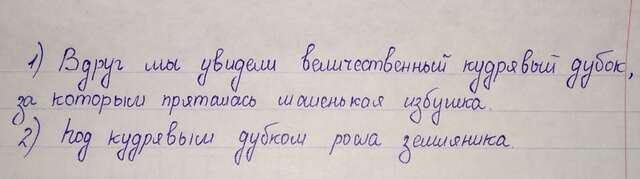 1) Вдруг мы увидели величественный кудрявый дубок,
за которым пряталась маленькая избушка.
2) Под кудрявым дубком росла земляника.